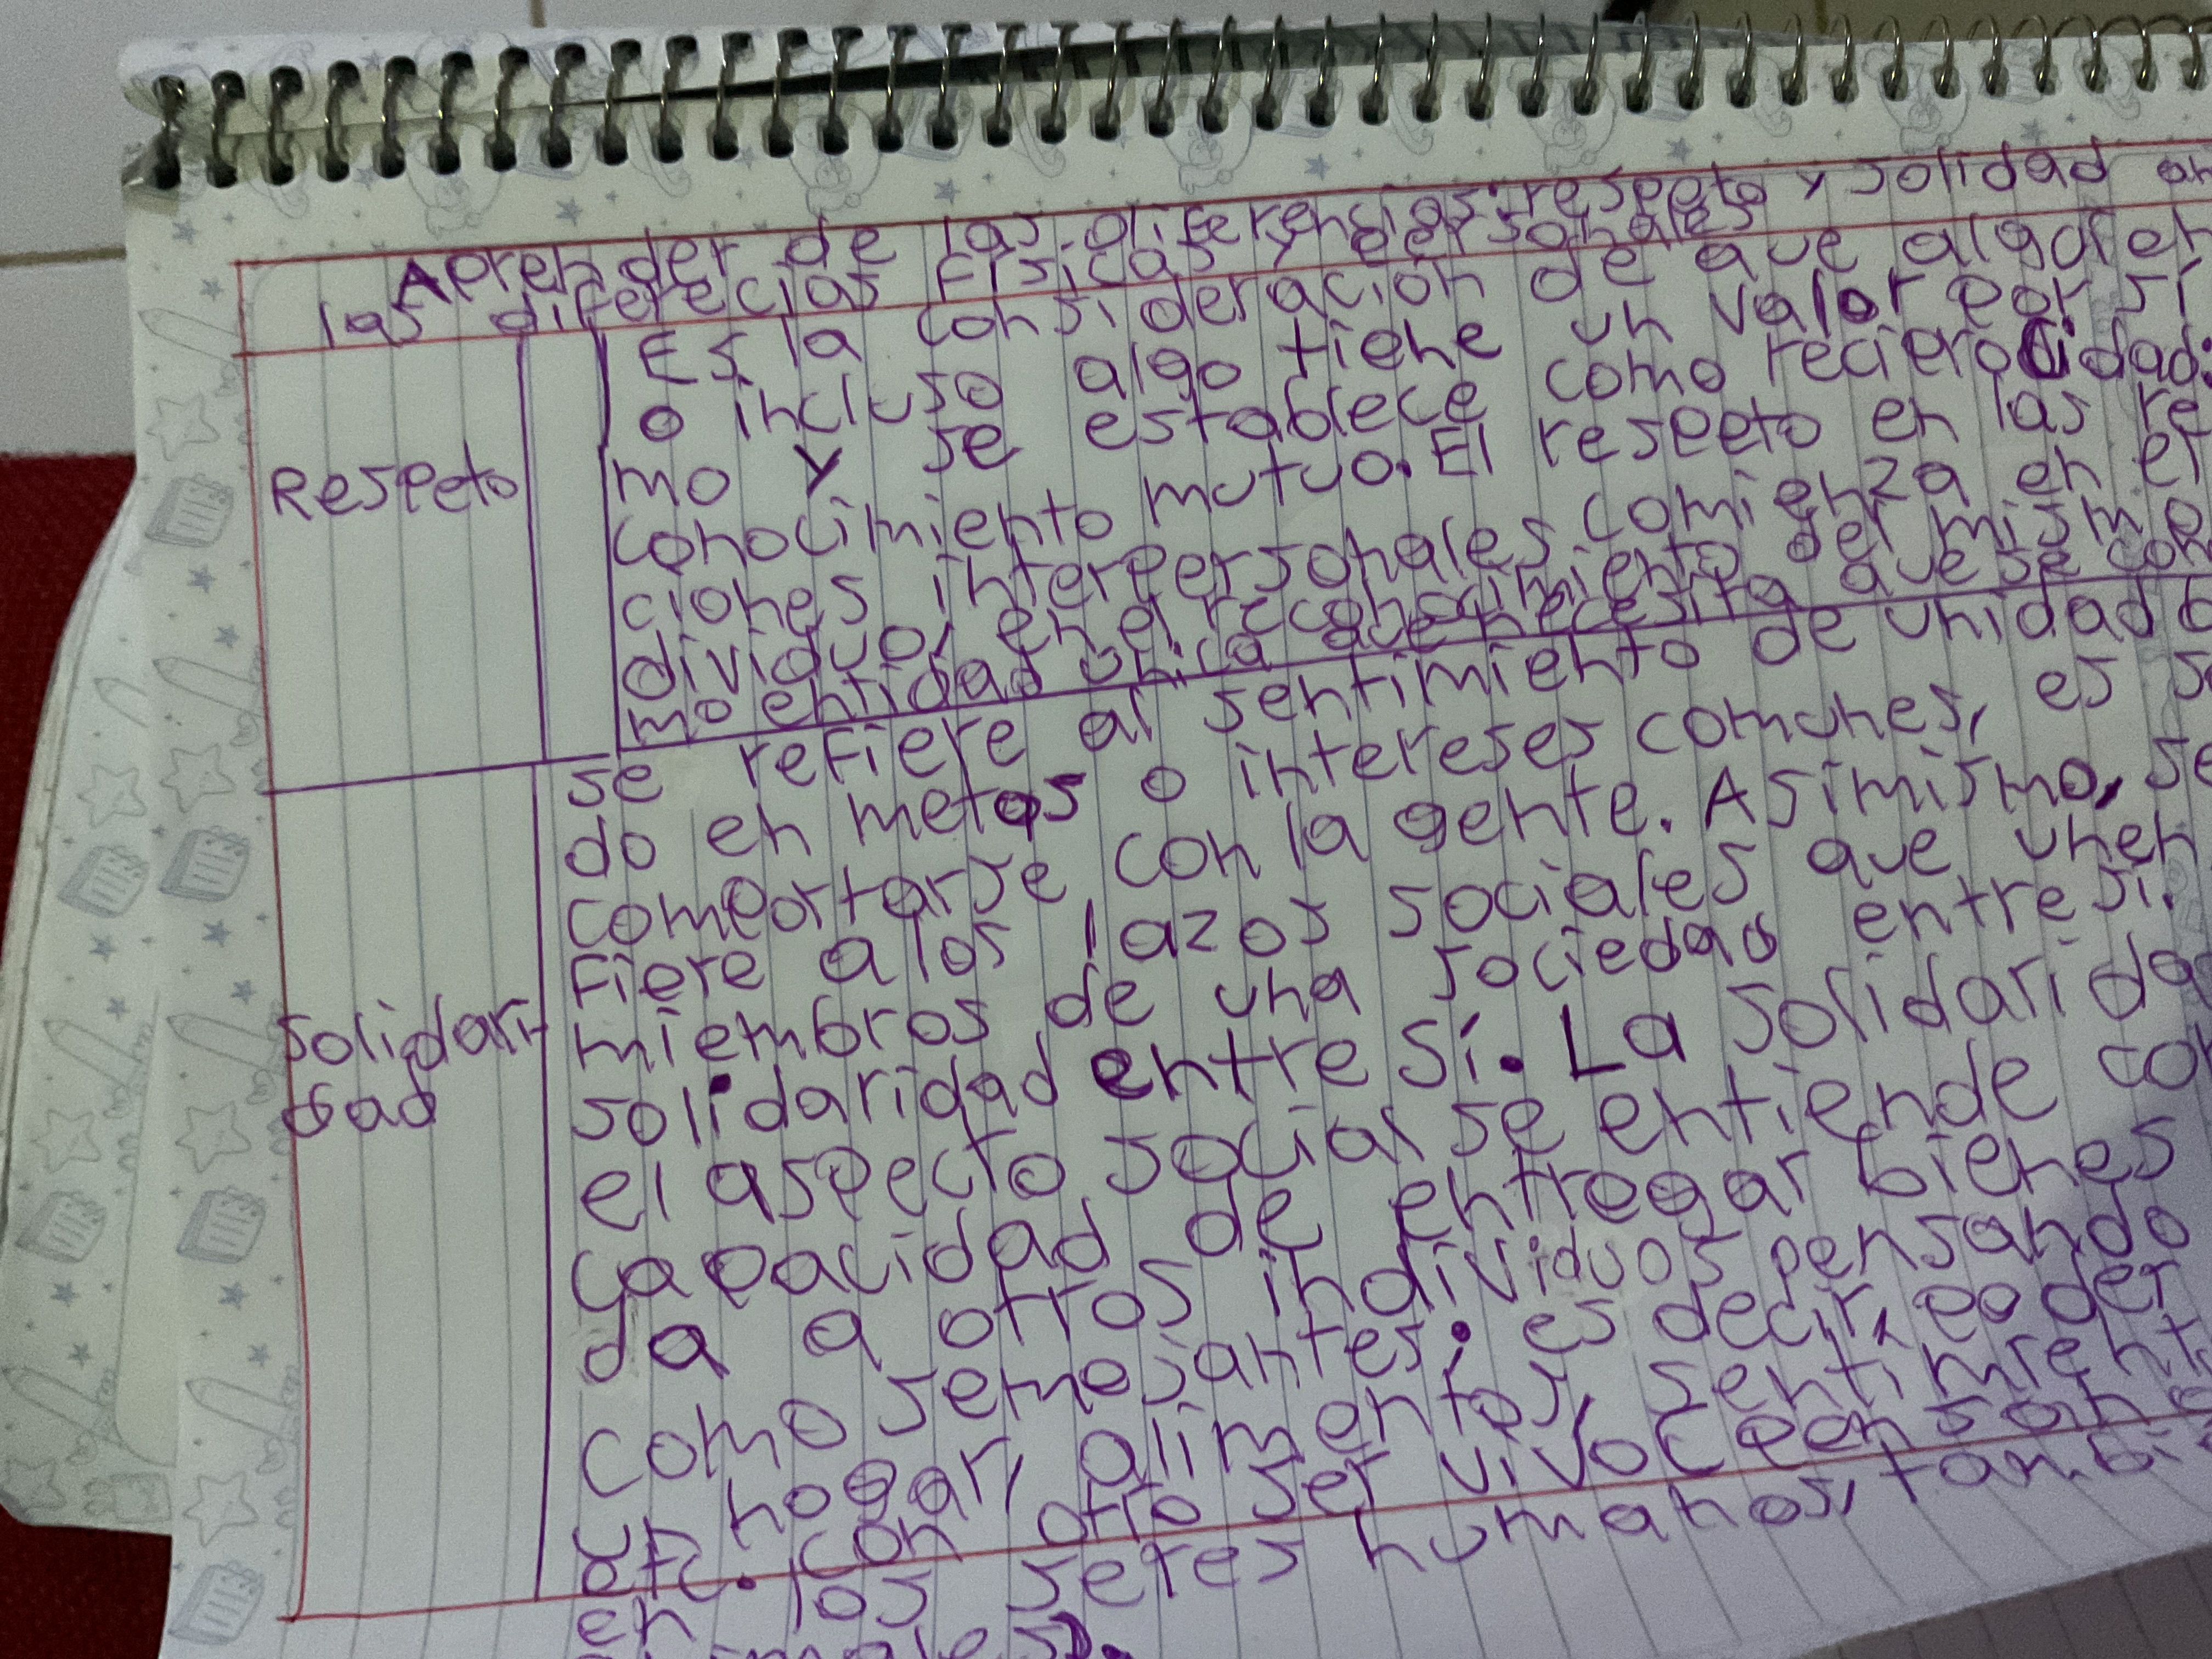 Aprender de las diferencias: respeto y solidad an
las diferecias Fisicas y personales
Respeto
Es la consideración de que alguien
o incluso algo tiene un valor por si
mo y se establece como reciprocidad:
conocimiento mutuo. El respeto en las re
ciones interpersonales comienza en el
dividuo, en el reconocimiento del mismo
mo entidad unica que necesita que se com
Solidari-
dad
se refiere al sentimiento de unidad
do en metas o intereses comunes, es
comportarse con la gente. Asimismo, se
Fiere a los lazos sociales que unen
miembros de una sociedad entre si.
solidaridad entre sí. La solidarida
el aspecto social se entiende co
capacidad de entregar bienes
da a otros individuos pensando
como semejantes; es decir, poder
un hogar, alimentos, sentimient
etc. con otro ser vivo (pensan
en los seres humanos, tambi
animales).